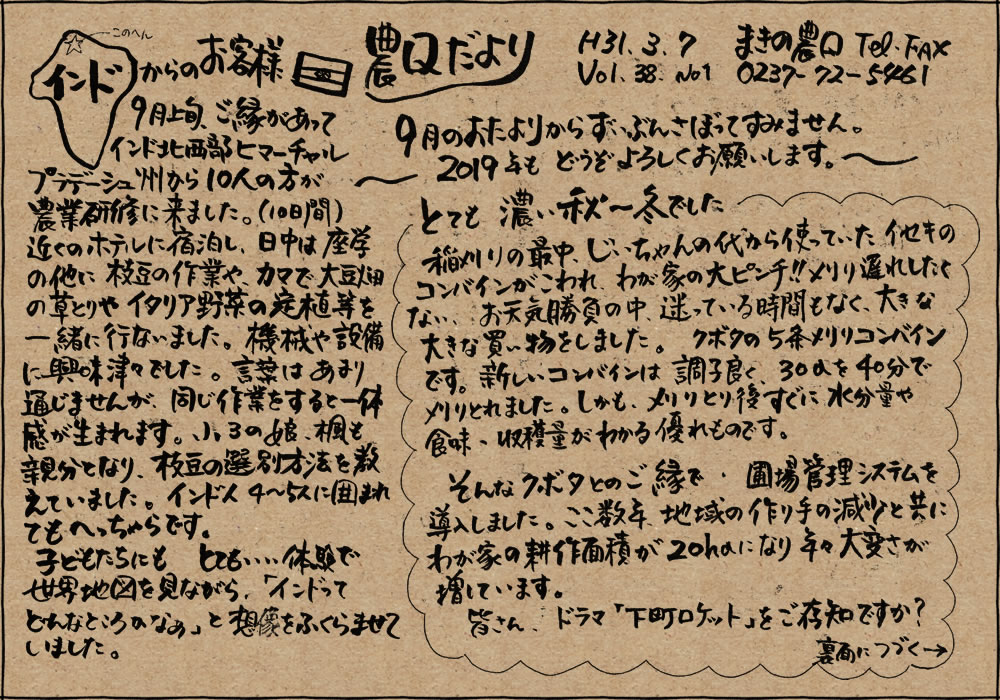 農口だより
H31.3.7
Vol.38. No1
まきの農口 Tel・FAX
0237-72-5461
9月のおたよりからずいぶんさぼってすみません。
2019年も どうぞよろしくお願いします。
このへん
インドからのお客様
9月上旬、ご縁があって
インド北西部ヒマーチャル
プラデーシュ州から10人の方が
農業研修に来ました。(10日間)
近くのホテルに宿泊し、日中は座学
の他に枝豆の作業や、カマで大豆畑
の草とりやイタリア野菜の定植等を
一緒に行ないました。機械や設備
に興味津々でした。言葉はあまり
通じませんが、同じ作業をすると一体
感が生まれます。小3の娘、楓も
親分となり、枝豆の選別方法を教
えていました。インド人4〜5人に囲まれ
てもへっちゃらです。
子どもたちにも とても‥‥体験で
世界地図を見ながら、「インドって
どんなところかなぁ」と想像をふくらませて
いました。
とても 濃い秋〜冬でした
稲刈りの最中、じいちゃんの代から使っていたイセキの
コンバインがこわれ、わが家の大ピンチ!!メリリ遅れしたく
ない、お天気勝負の中、迷っている時間もなく、大きな
大きな買い物をしました。クボタの5条メリリコンバイン
です。新しいコンバインは調子良く、30aを40分で
メリりとれました。しかも、メリりとり後すぐに水分量や
食味、収穫量がわかる優れものです。
そんなクボタとのご縁で、圃場管理システムを
導入しました。ここ数年、地域の作り手の減少と共に
わが家の耕作面積が20haになり年々大変さが
増しています。
皆さん、ドラマ「下町ロケット」をご存知ですか?
裏面につづく→